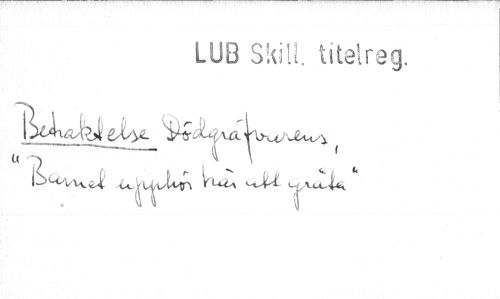 LUB Skill. titelreg.
Betraktelse Dödgräfvarens,
"Barnet upphör här att gråta"